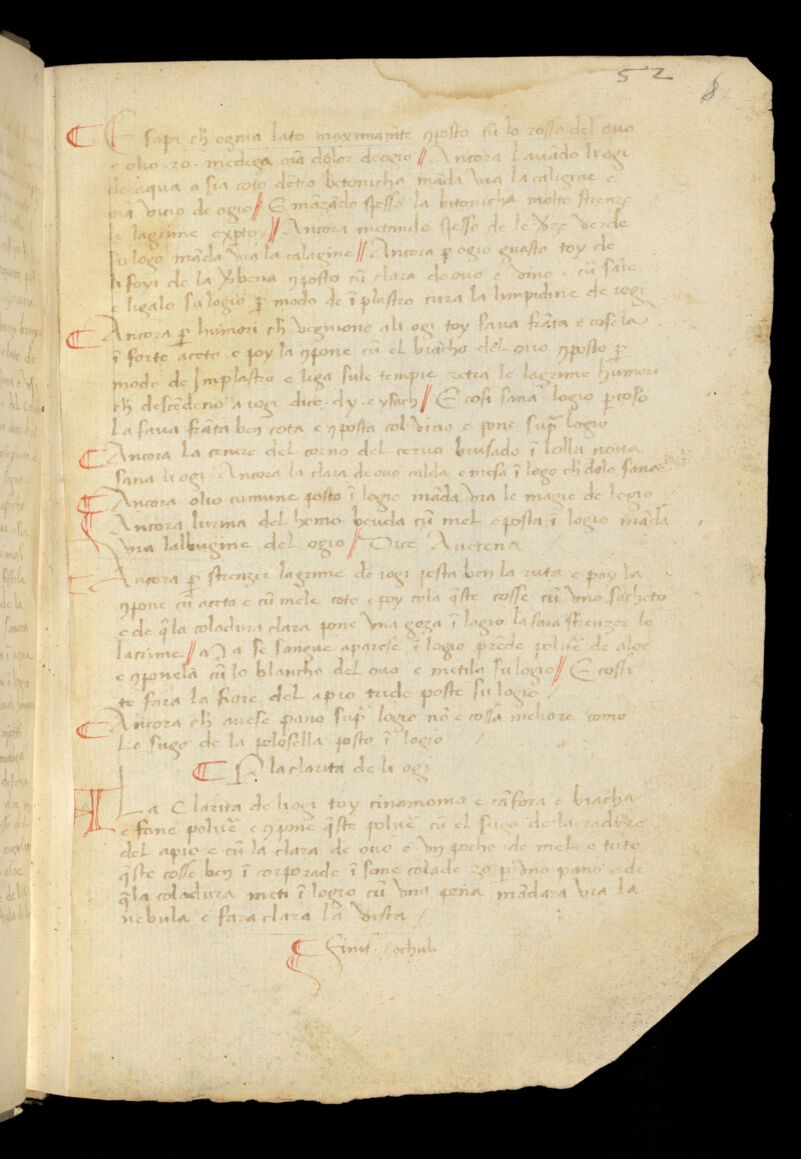 52
¶ E sapi ch̄ ogma lato maximam̄te ꝯposto cū lo rosso del ovo
e olio ro. medega oīa dolor de ogio // Ancora lavādo li ogi
de aqua o sia coto dētro betonicha māda via la caligine e
oīa vicio de ogio // E māzādo spesso la bitonicha molto strenze
le lagrime exp̄to // Ancora metando spesso de le verde
su logo māda via la calagine // Ancora ꝑ ogio guasto toy de
li foyi de la v̄bena ꝯposto cū clara de ovo e vino e cū sale
e ligalo su logio ꝑ modo de īplastro cura la limpidine de iogi
¶ Ancora ꝑ humori ch̄ vegniono ali ogi toy fava frāta e cosela
ī forte aceto e poy la ꝯpone cū el biācho del ovo ꝯposto ꝑ
modo de Implastro e liga sule tempie retia le lagrime humori
ch̄ descēdeno a iogi dice. dy. e ysach // E cosi sana logio ꝑcoso
La fava frāta ben cota e ꝯposta col vino e pone sup̄ logio
¶ Ancora la cenere del corno del cervo brusado ī lolla nova
sana li ogi / Ancora la clara de ovo calda e mesa ī logo ch̄ dole sana
¶ Ancora olio cumune posto ī logio māda via le magie de logio /
¶ Ancora lurina del homo beuda cū mel e posta ī logio māda
via lalbugine del ogio // Dice Avicena
¶ Ancora ꝑ strenzer lagrime de iogi pesta ben la ruta e poy la
ꝯpone cū aceto e cū mele coto e poy cola q̄ste cosse cū uno sacheto
e de q̄la coladura clara pone una goza ī logio la fara strenzer le
lacrime // Ma se sangue aparese ī logio prēde polvē de aloe
e ꝯponela cū lo blancho del ovo e metila su logio // E cossi
te fara la fiore del apio tride poste su logio /
¶ Ancora ch̄ avese pano sup̄ logio nō e cossa meliore como
Le sugo de la pelosella posto ī logio /
¶ P̲ la clarita de li ogi
A La Clarita de li ogi toy cinamomo e cāfora e biacha
e fane polvē e ꝯpone q̄ste polvē cū el sugo de la radize
del apio e cū la clara de ovo e un pocho de mel e tute
q̄ste cosse ben ī corporade ī seme colade zo ꝑ uno pano e de
q̄la coladura meti ī logio cū una pena mādara via la
nebula e fara clara la vista /
¶ Finis. ochuli